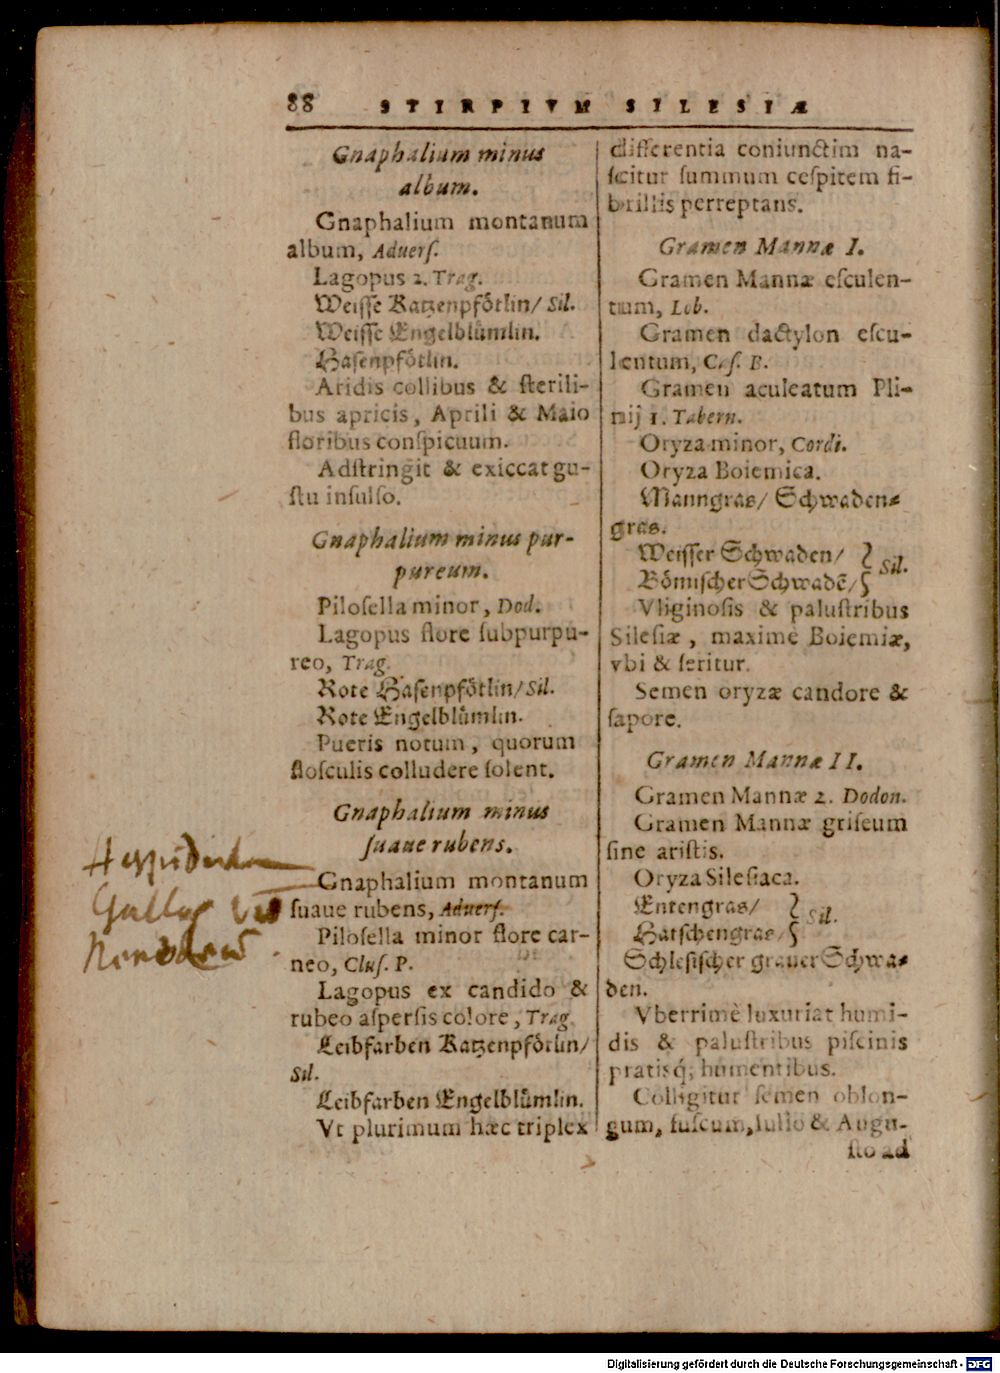 88 STIRPIVM SILESIÆ
Gnaphalium minus
album.
Gnaphalium montanum
album, Aduerſ.
Lagopus 2. Trag.
Weiſſe Katzenpfoͤtlin/ Sil.
Weiſſe Engelbluͤmlin.
Haſenpfoͤtlin.
Aridis collibus & ſterili-
bus apricis, Aprili & Maio
floribus conſpicuum.
Adſtringit & exiccat gu-
ſtu inſulſo.
Gnaphalium minus pur-
pureum.
Piloſella minor, Dod.
Lagopus flore ſubpurpu-
reo, Trag.
Rote Haſenpfoͤtlin/ Sil.
Rote Engelbluͤmlin.
Pueris notum, quorum
floſculis colludere ſolent.
Gnaphalium minus
ſuaue rubens.
Gnaphalium montanum
ſuaue rubens, Aduerſ.
Piloſella minor flore car-
neo, Cluſ. P.
Lagopus ex candido &
rubeo aſperſis colore, Trag.
Leibfarben Katzenpfoͤtlin/
Sil.
Leibfarben Engelbluͤmlin.
Vt plurimum hæc triplex
differentia coniunctim na-
ſcitur ſummum ceſpitem fi-
brillis perreptans.
Gramen Mannæ I.
Gramen Mannæ eſculen-
tum, Lob.
Gramen dactylon eſcu-
lentum, Caſ. B.
Gramen aculeatum Pli-
nij 1. Tabern.
Oryza minor, Cordi.
Oryza Boiemica.
Manngras/ Schwaden-
gras.
Weiſſer Schwaden/
Boͤmiſcher Schwadē/ } Sil.
Vliginoſis & paluſtribus
Sileſiæ, maximè Boiemiæ,
vbi & ſeritur.
Semen oryzæ candore &
ſapore.
Gramen Mannæ II.
Gramen Mannæ 2. Dodon.
Gramen Mannæ griſeum
ſine ariſtis.
Oryza Sileſiaca.
Entengras/
Hatſchengras/ } Sil.
Schleſiſcher grauer Schwa-
den.
Vberrimè luxuriat humi-
dis & paluſtribus piſcinis
pratisq́; humentibus.
Colligitur ſemen oblon-
gum, fuſcum, Iulio & Augu-
ſto ad
Digitalisierung gefördert durch die Deutsche Forschungsgemeinschaft - DFG